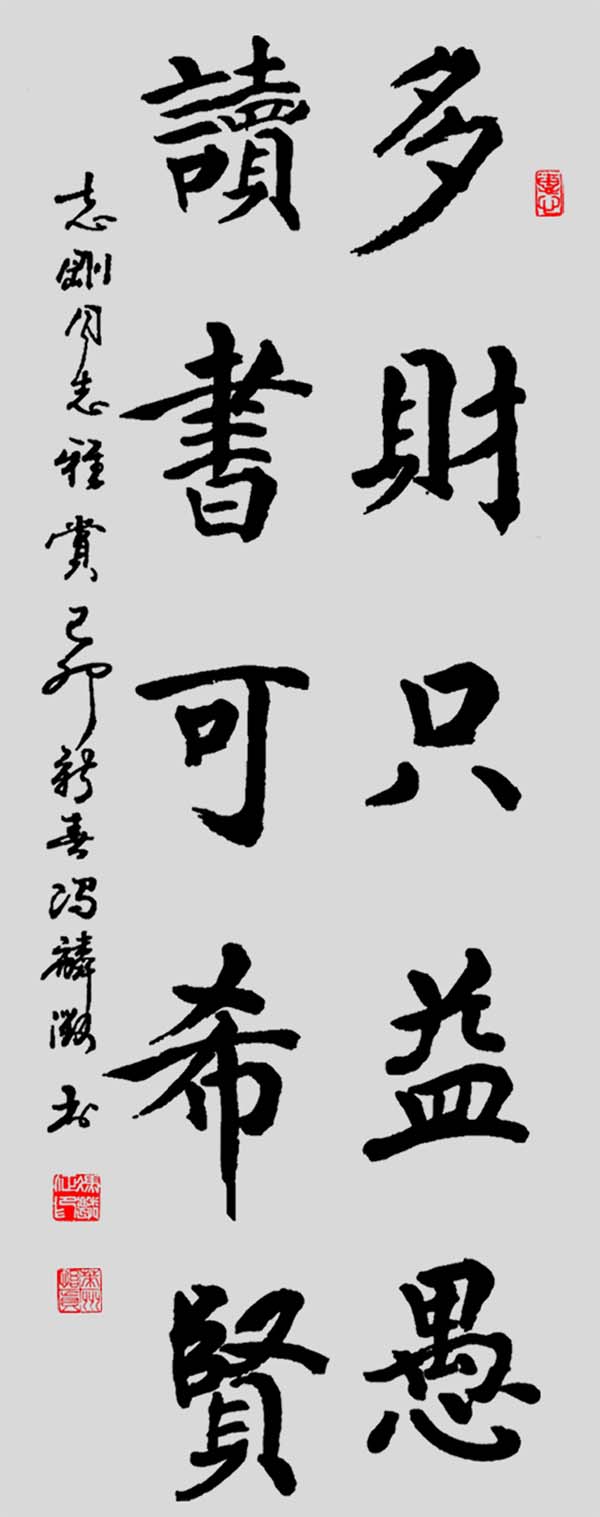 多財只益愚
讀書可希賢
志剛同志雅賞己卯新春馮麟澂書